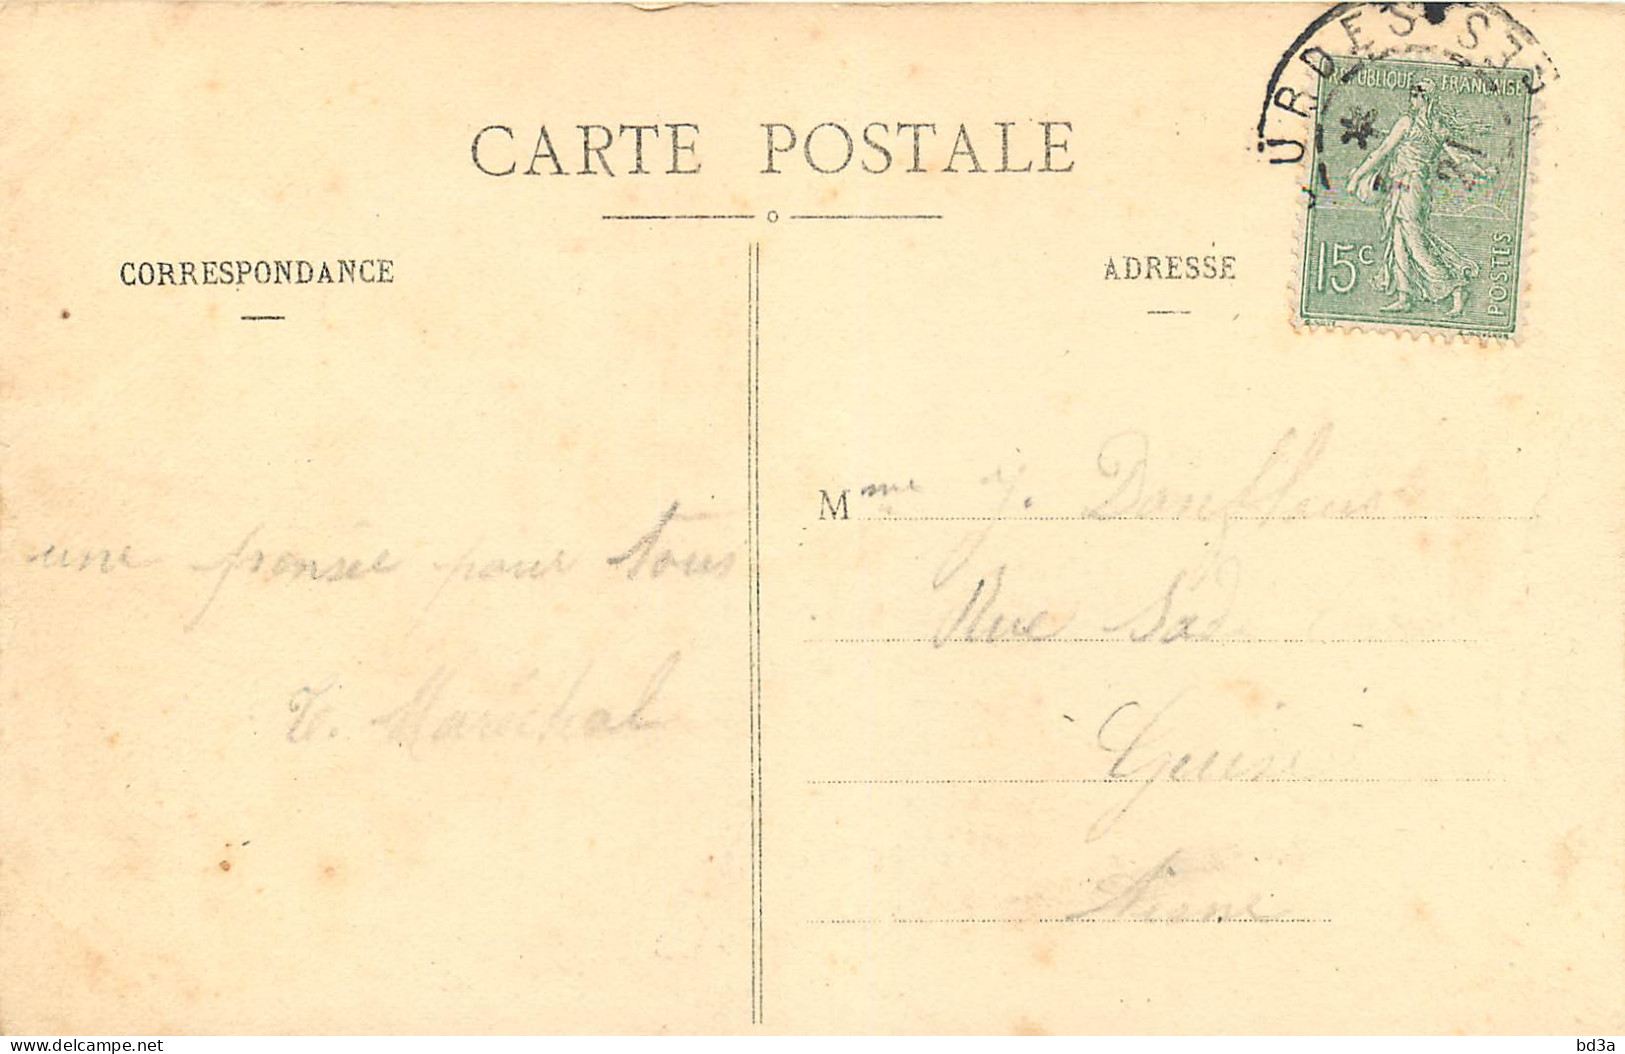 CARTE POSTALE
CORRESPONDANCE
ADRESSE
RÉPUBLIQUE FRANÇAISE
15c
POSTES
URDES
21
Mme J.
une pensée pour tous
Rue
T. Maréchal
Guise
Aisne
delcampe.net
bd3a